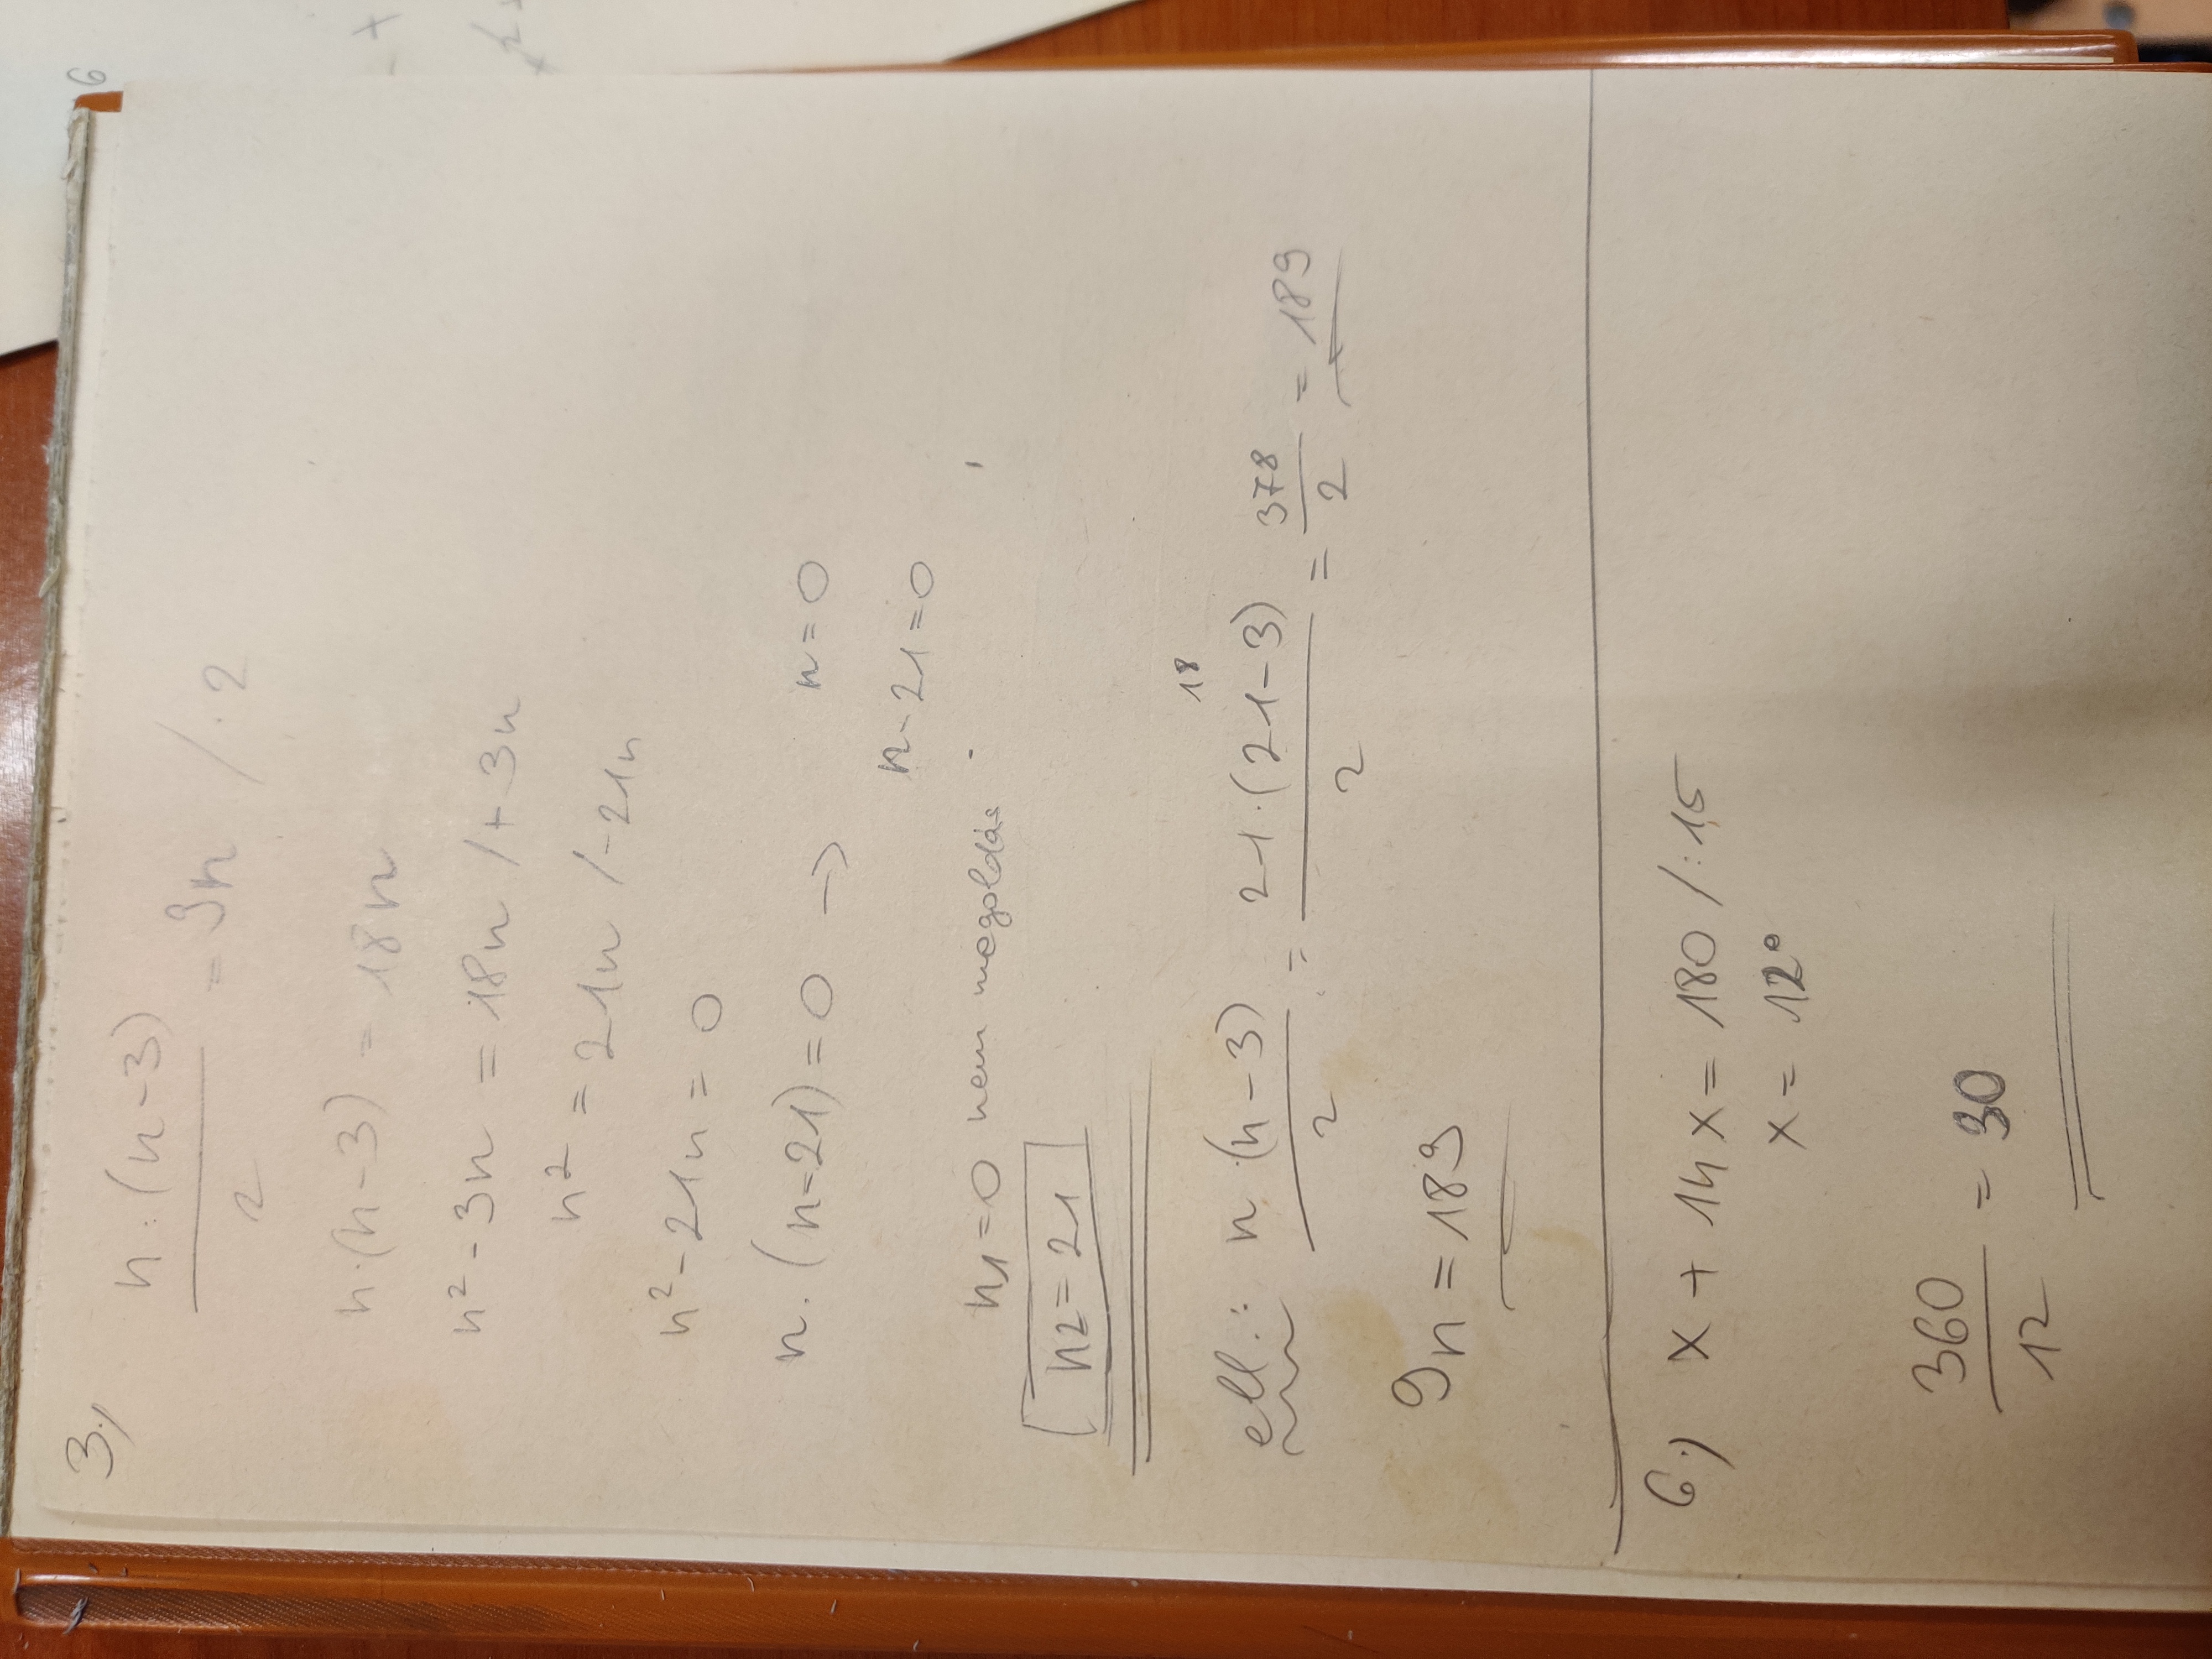 3.)
n·(n-3)/2 = 9n /·2
n·(n-3) = 18n
n² - 3n = 18n /+3n
n² = 21n /-21n
n² - 21n = 0
n·(n-21) = 0 → n = 0
n-21 = 0
n₁ = 0 nem megoldás.
n₂ = 21
ell.: n·(n-3)/2 = 21·(21-3)/2 = 378/2 = 189
18
9n = 189
6.) x + 14x = 180 /:15
x = 12°
360/12 = 30